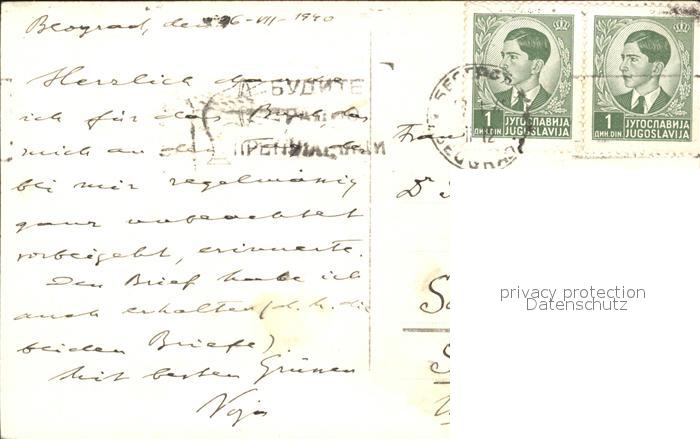 Beograd, den 26-VII-1940
Herzlich danke
ich für das Buch das
mich an den
bei mir regelmässig
ganz unbeachtet
vorbeigeht, erinnerte.
Den Brief habe ich
auch erhalten (d.h. die
beiden Briefe).
Mit besten Grüssen
Voja
БУДИТЕ
ПРЕТПЛАТНИЦИ
БЕОГРАД
BEOGRAD
1
ДИН DIN
ЈУГОСЛАВИЈА
JUGOSLAVIJA
1
ДИН DIN
ЈУГОСЛАВИЈА
JUGOSLAVIJA
Frau
Dr
privacy protection
Datenschutz